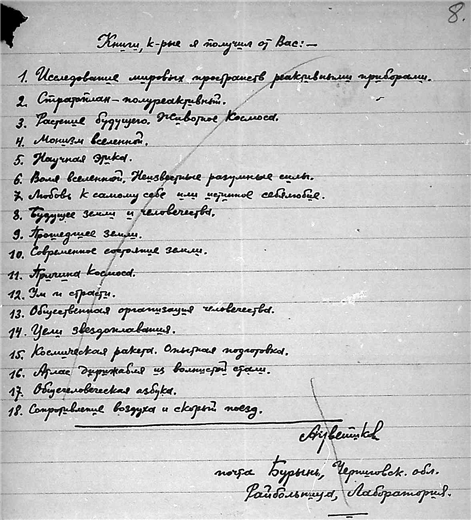 8.
Книги, к-рые я получил от Вас:—
1. Исследование мировых пространств реактивными приборами.
2. Стратоплан-полуреактивный.
3. Растение будущего. Животное Космоса.
4. Монизм вселенной.
5. Научная этика.
6. Воля вселенной. Неизвестные разумные силы.
7. Любовь к самому себе или истинное себялюбие.
8. Будущее земли и человечества.
9. Прошедшее земли.
10. Современное состояние земли.
11. Причина Космоса.
12. Ум и страсти.
13. Общественная организация человечества.
14. Цели звездоплавания.
15. Космическая ракета. Опытная подготовка.
16. Атлас дирижабля из волнистой стали.
17. Общечеловеческая азбука.
18. Сопротивление воздуха и скорый поезд.
почта Бурынь, Черниговск. обл.
Райбольница, Лаборатория.